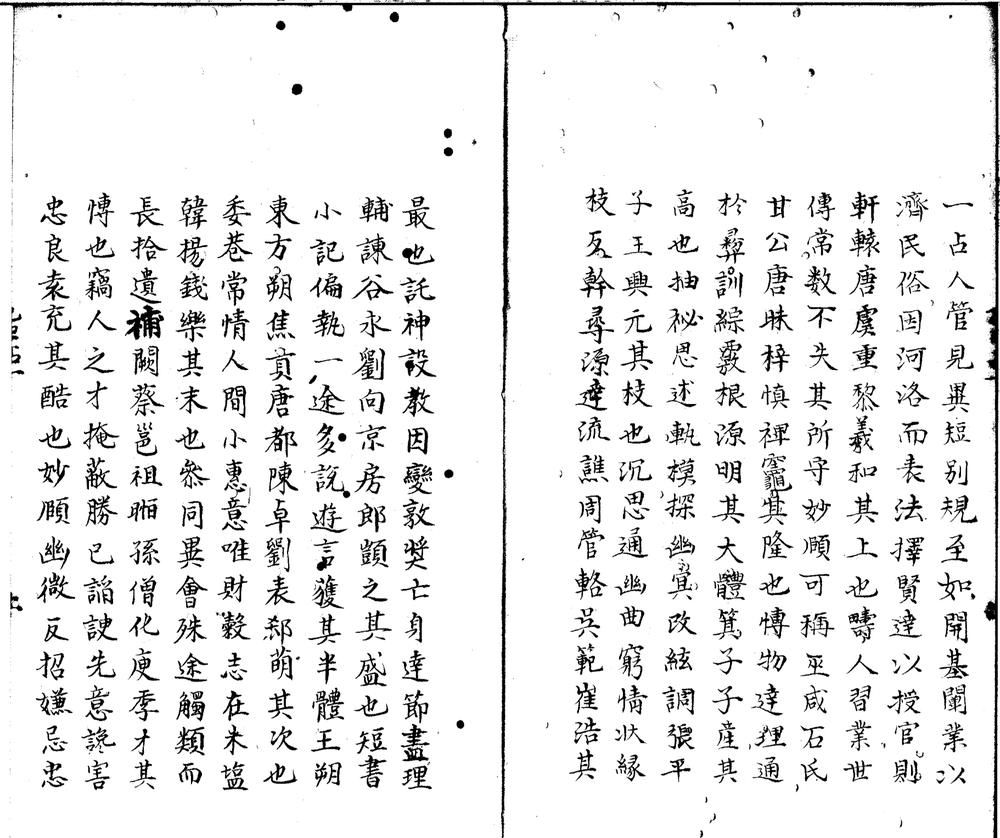 一占人管見異短別規至如開基闡業以
濟民俗因河洛而表法擇賢達以授官則
軒轅唐虞重黎羲和其上也疇人習業世
傳常数不失其所守妙頤可稱巫咸石氏
甘公唐昧梓慎裨竈其隆也愽物達理通
於彛訓綜覈根源明其大體箕子子產其
高也抽祕思述軌模探幽冥改絃調張平
子王興元其枝也沉思通幽曲窮情狀緣
枝反幹尋源達流譙周管輅吳範崔浩其
最也託神設教因變敦奬亡身達節盡理
輔諌谷永劉向京房郎顗之其盛也短書
小記偏執一途多說遊言獲其半體王朔
東方朔焦貢唐都陳卓劉表郗萌其次也
委巷常情人間小惠意唯財穀志在米塩
韓楊錢樂其末也叅同異會殊途觸類而
長拾遺補闕蔡邕祖暅孫僧化庾季才其
愽也竊人之才掩蔽勝已諂諛先意讒害
忠良袁充其酷也妙頤幽微反招嫌忌忠